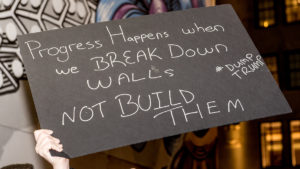 Progress Happens when
we BREAK Down
WALLs
NOT BUILD
THEM
#DUMP
TRUMP